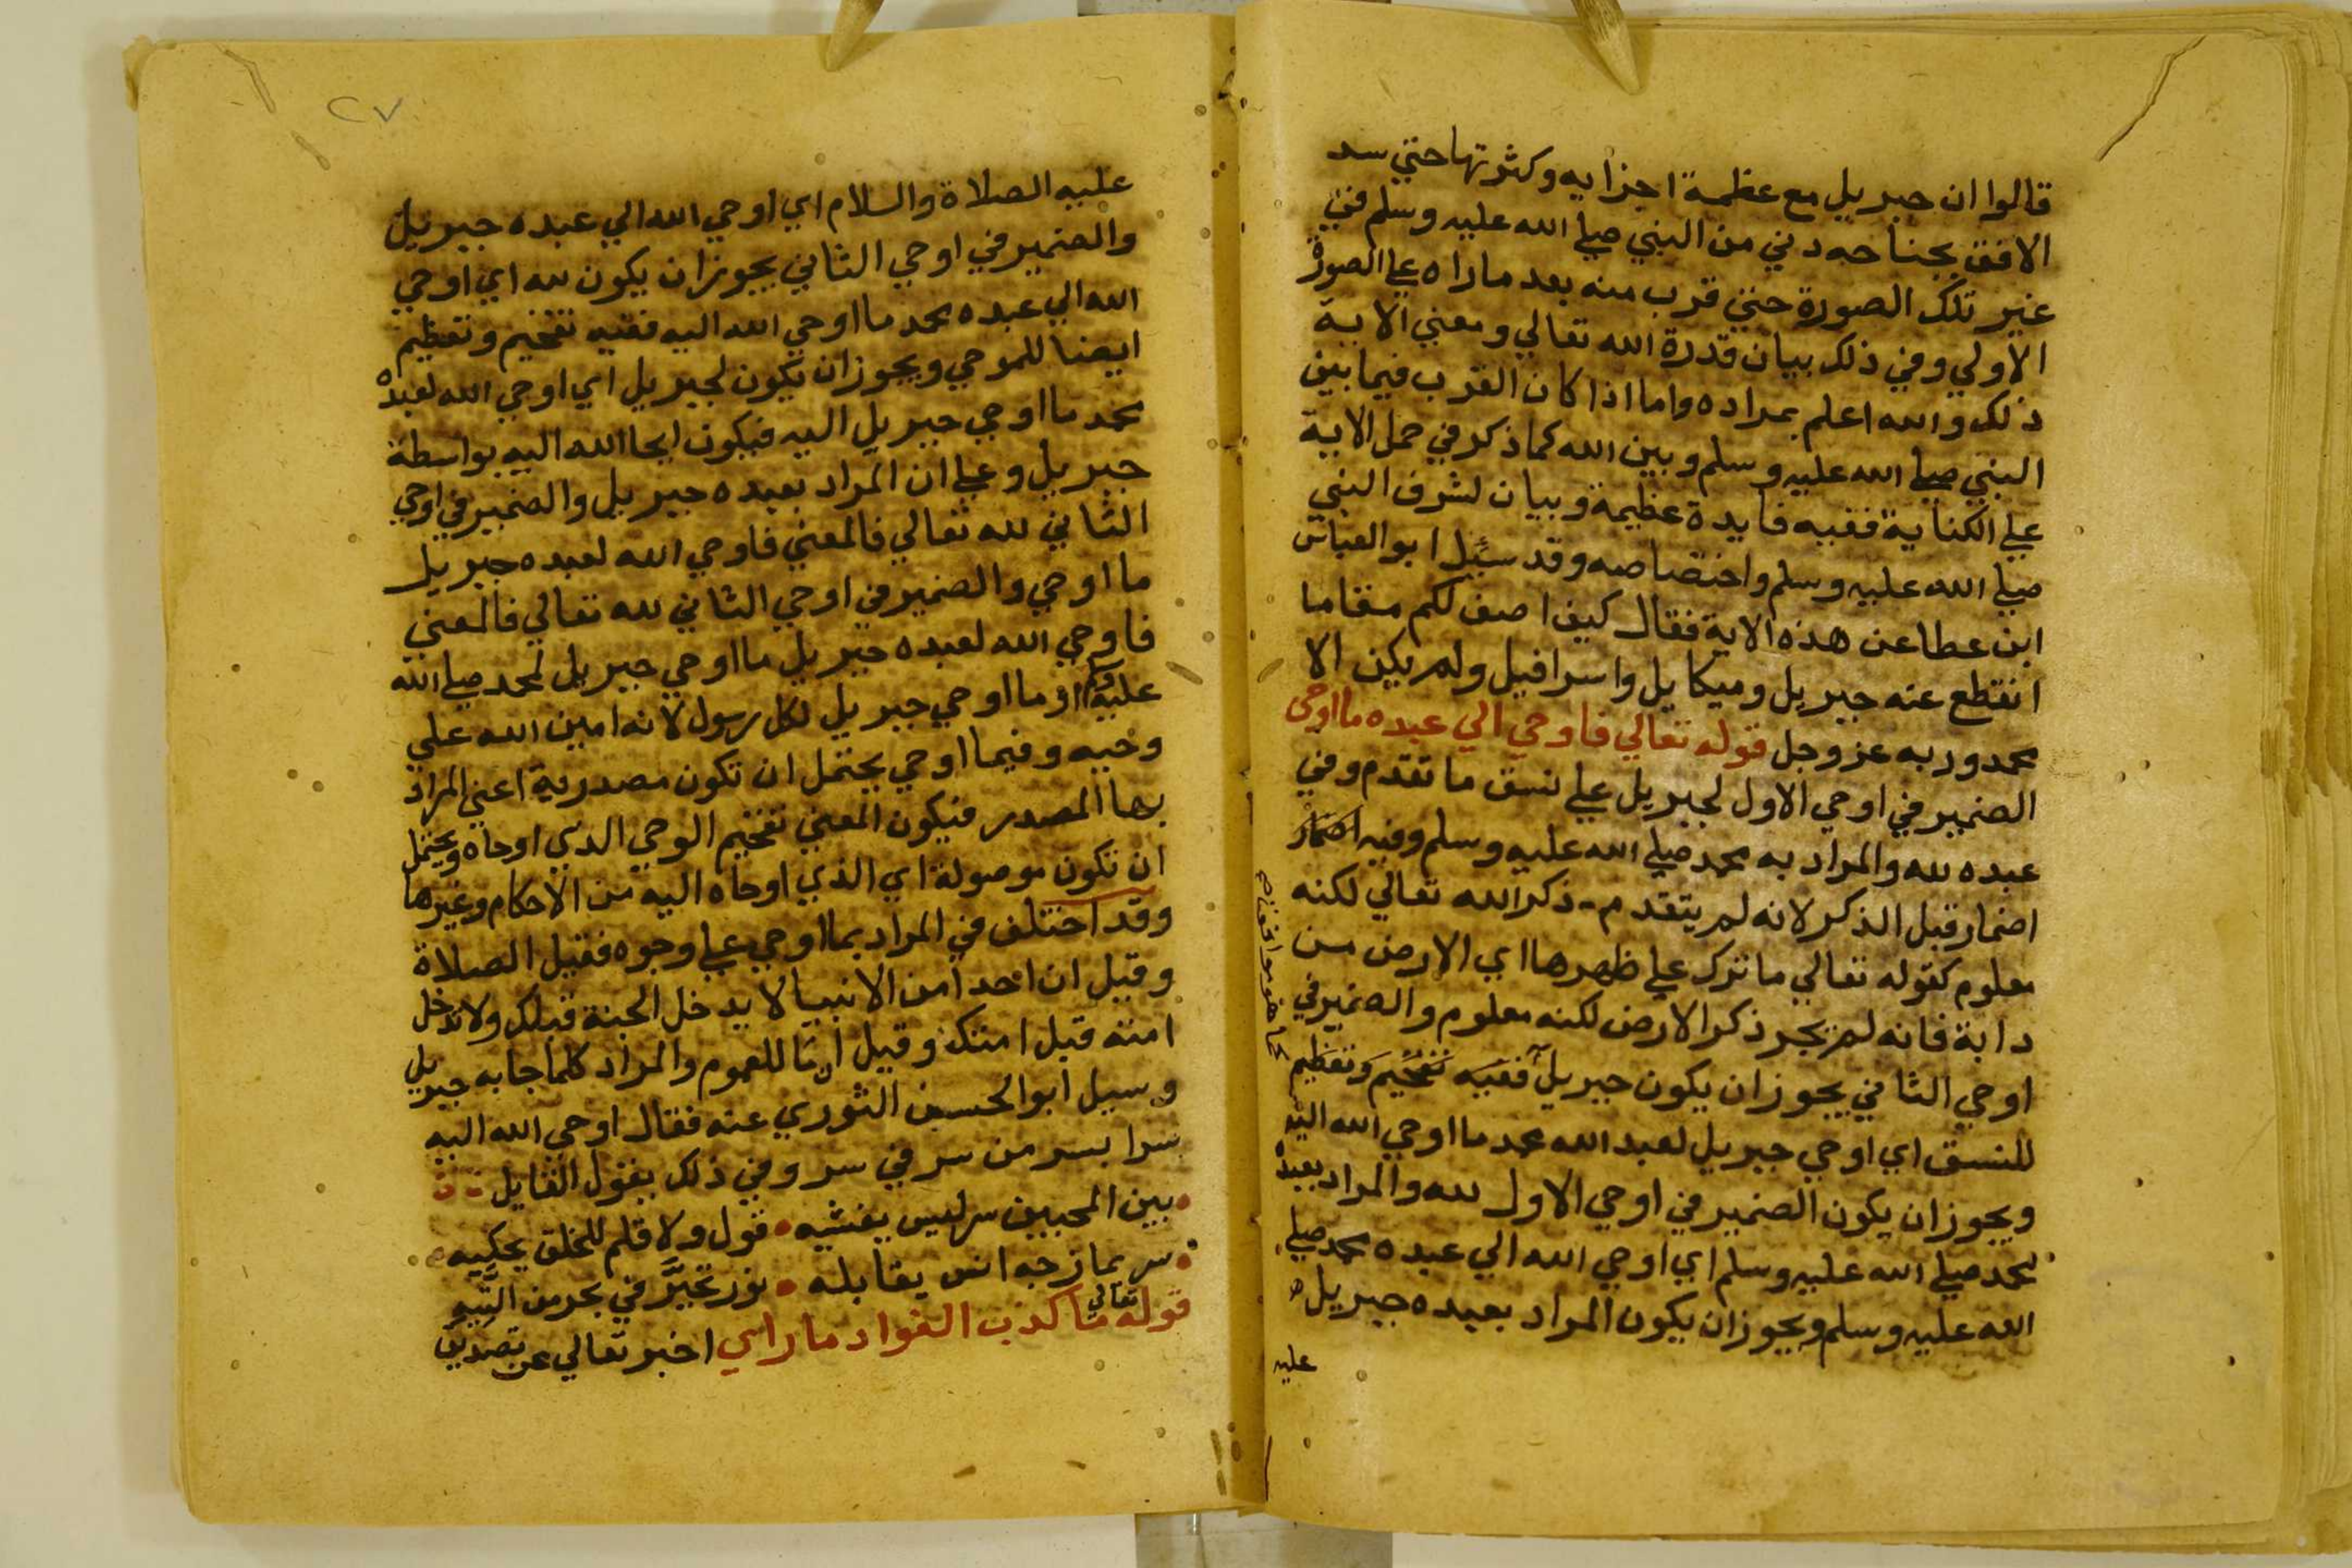 قالوا ان جبريل مع عظمة اجزايه وكثرتها حتي سد
الافق بجناحه دني من النبي صلي الله عليه وسلم في
غير تلك الصورة حتي قرب منه بعد ما راه علي الصورة
الاولي وفي ذلك بيان قدرة الله تعالي ومعني الاية
ذلك والله اعلم بمراده واما اذا كان القرب فيما بين
النبي صلي الله عليه وسلم وبين الله كما ذكر في حمل الاية
علي الكناية ففيه فايدة عظيمة وبيان لشرف النبي
صلي الله عليه وسلم واختصاصه وقد سئيل ابو العباس
ابن عطا عن هذه الاية فقال كيف اصف لكم مقاما
انقطع عنه جبريل وميكايل واسرافيل ولم يكن الا
محمد وربه عز وجل قوله تعالي فاوحي الي عبده ما اوحي
الضمير في اوحي الاول لجبريل علي نسق ما تقدم وفي
عبده لله والمراد به محمد صلي الله عليه وسلم وفيه اضمار
اضمار قبل الذكر لانه لم يتقدم ذكر الله تعالي لكنه
معلوم كقوله تعالي ما ترك علي ظهرها اي الارض من
دابة فانه لم يجر ذكر الارض لكنه معلوم والضمير في
اوحي الثاني يجوز ان يكون جبريل ففيه تفخيم وتعظيم
للنسق اي اوحي جبريل لعبد الله محمد ما اوحي الله اليه
ويجوز ان يكون الضمير في اوحي الاول لله والمراد بعبده
محمد صلي الله عليه وسلم اي اوحي الله الي عبده محمد صلي
الله عليه وسلم ويجوز ان يكون المراد بعبده جبريل
عليه
٢٧
عليه الصلاة والسلام اي اوحي الله الي عبده جبريل
والضمير في اوحي الثاني يجوز ان يكون لله اي اوحي
الله الي عبده محمد ما اوحي الله اليه ففيه تفخيم وتعظيم
ايضا للموحي ويجوز ان تكون لجبريل اي اوحي الله لعبده
محمد ما اوحي جبريل اليه فيكون ايحا الله اليه بواسطة
جبريل وعلي ان المراد بعبده جبريل والضمير في اوحي
الثاني لله تعالي فالمعني فاوحي الله لعبده جبريل
ما اوحي والضمير في اوحي الثاني لله تعالي فالمعني
فاوحي الله لعبده جبريل ما اوحي جبريل لمحمد صلي الله
عليه وسلم او ما اوحي جبريل لكل رسول لانه امين الله علي
وحيه وفيما اوحي يحتمل ان تكون مصدرية اعني المراد
بها المصدر فيكون المعني تفخيم الوحي الذي اوحاه ويحتمل
ان تكون موصولة اي الذي اوحاه اليه من الاحكام وغيرها
وقد اختلف في المراد بما اوحي علي وجوه فقيل الصلاة
وقيل ان احدا من الانبيا لا يدخل الجنة قبلك ولا تدخل
امته قبل امتك وقيل ان ما للعموم والمراد كلما جا به جبريل
وسيل ابو الحسين الثوري عنه فقال اوحي الله اليه
سرا بسر من سر في سر وفي ذلك يقول القايل
بين المحبين سر ليس يفشيه • قول ولا قلم للخلق يحكيه
سر يمازجه انس يقابله • نور تحيَّر في بحر من التيه
قوله تعالي ما كذب الفواد ما راي اخبر تعالي عن تصديق